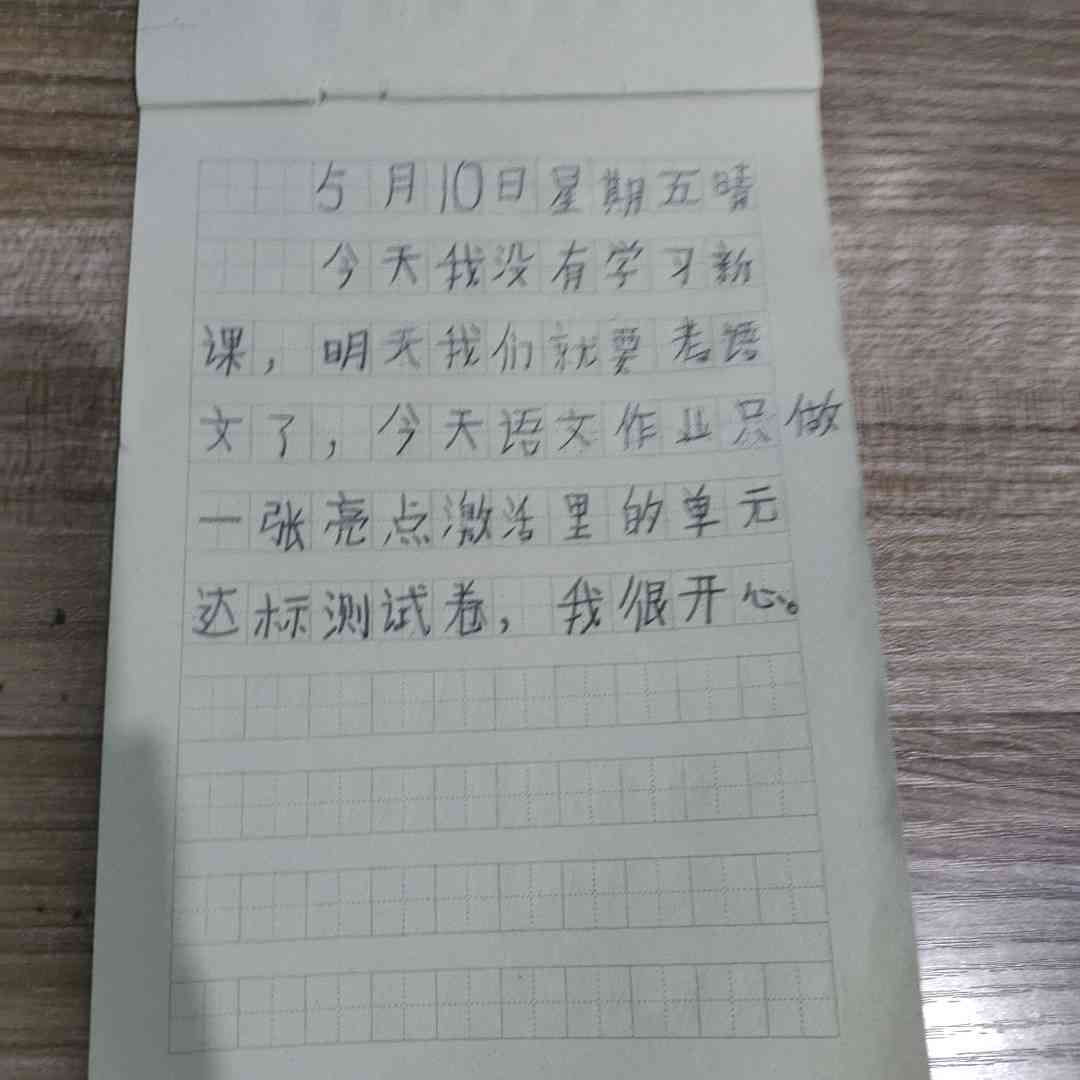 5月10日星期五晴
今天我没有学习新
课，明天我们就要考语
文了，今天语文作业只做
一张亮点激活里的单元
达标测试卷，我很开心。